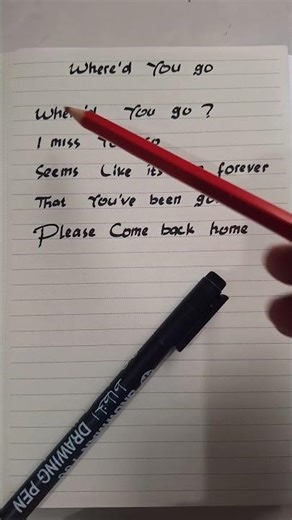 Where'd You go
Where'd You go ?
I miss so
Seems Like its forever
That You've been
Please Come back home
DRAWING PEN